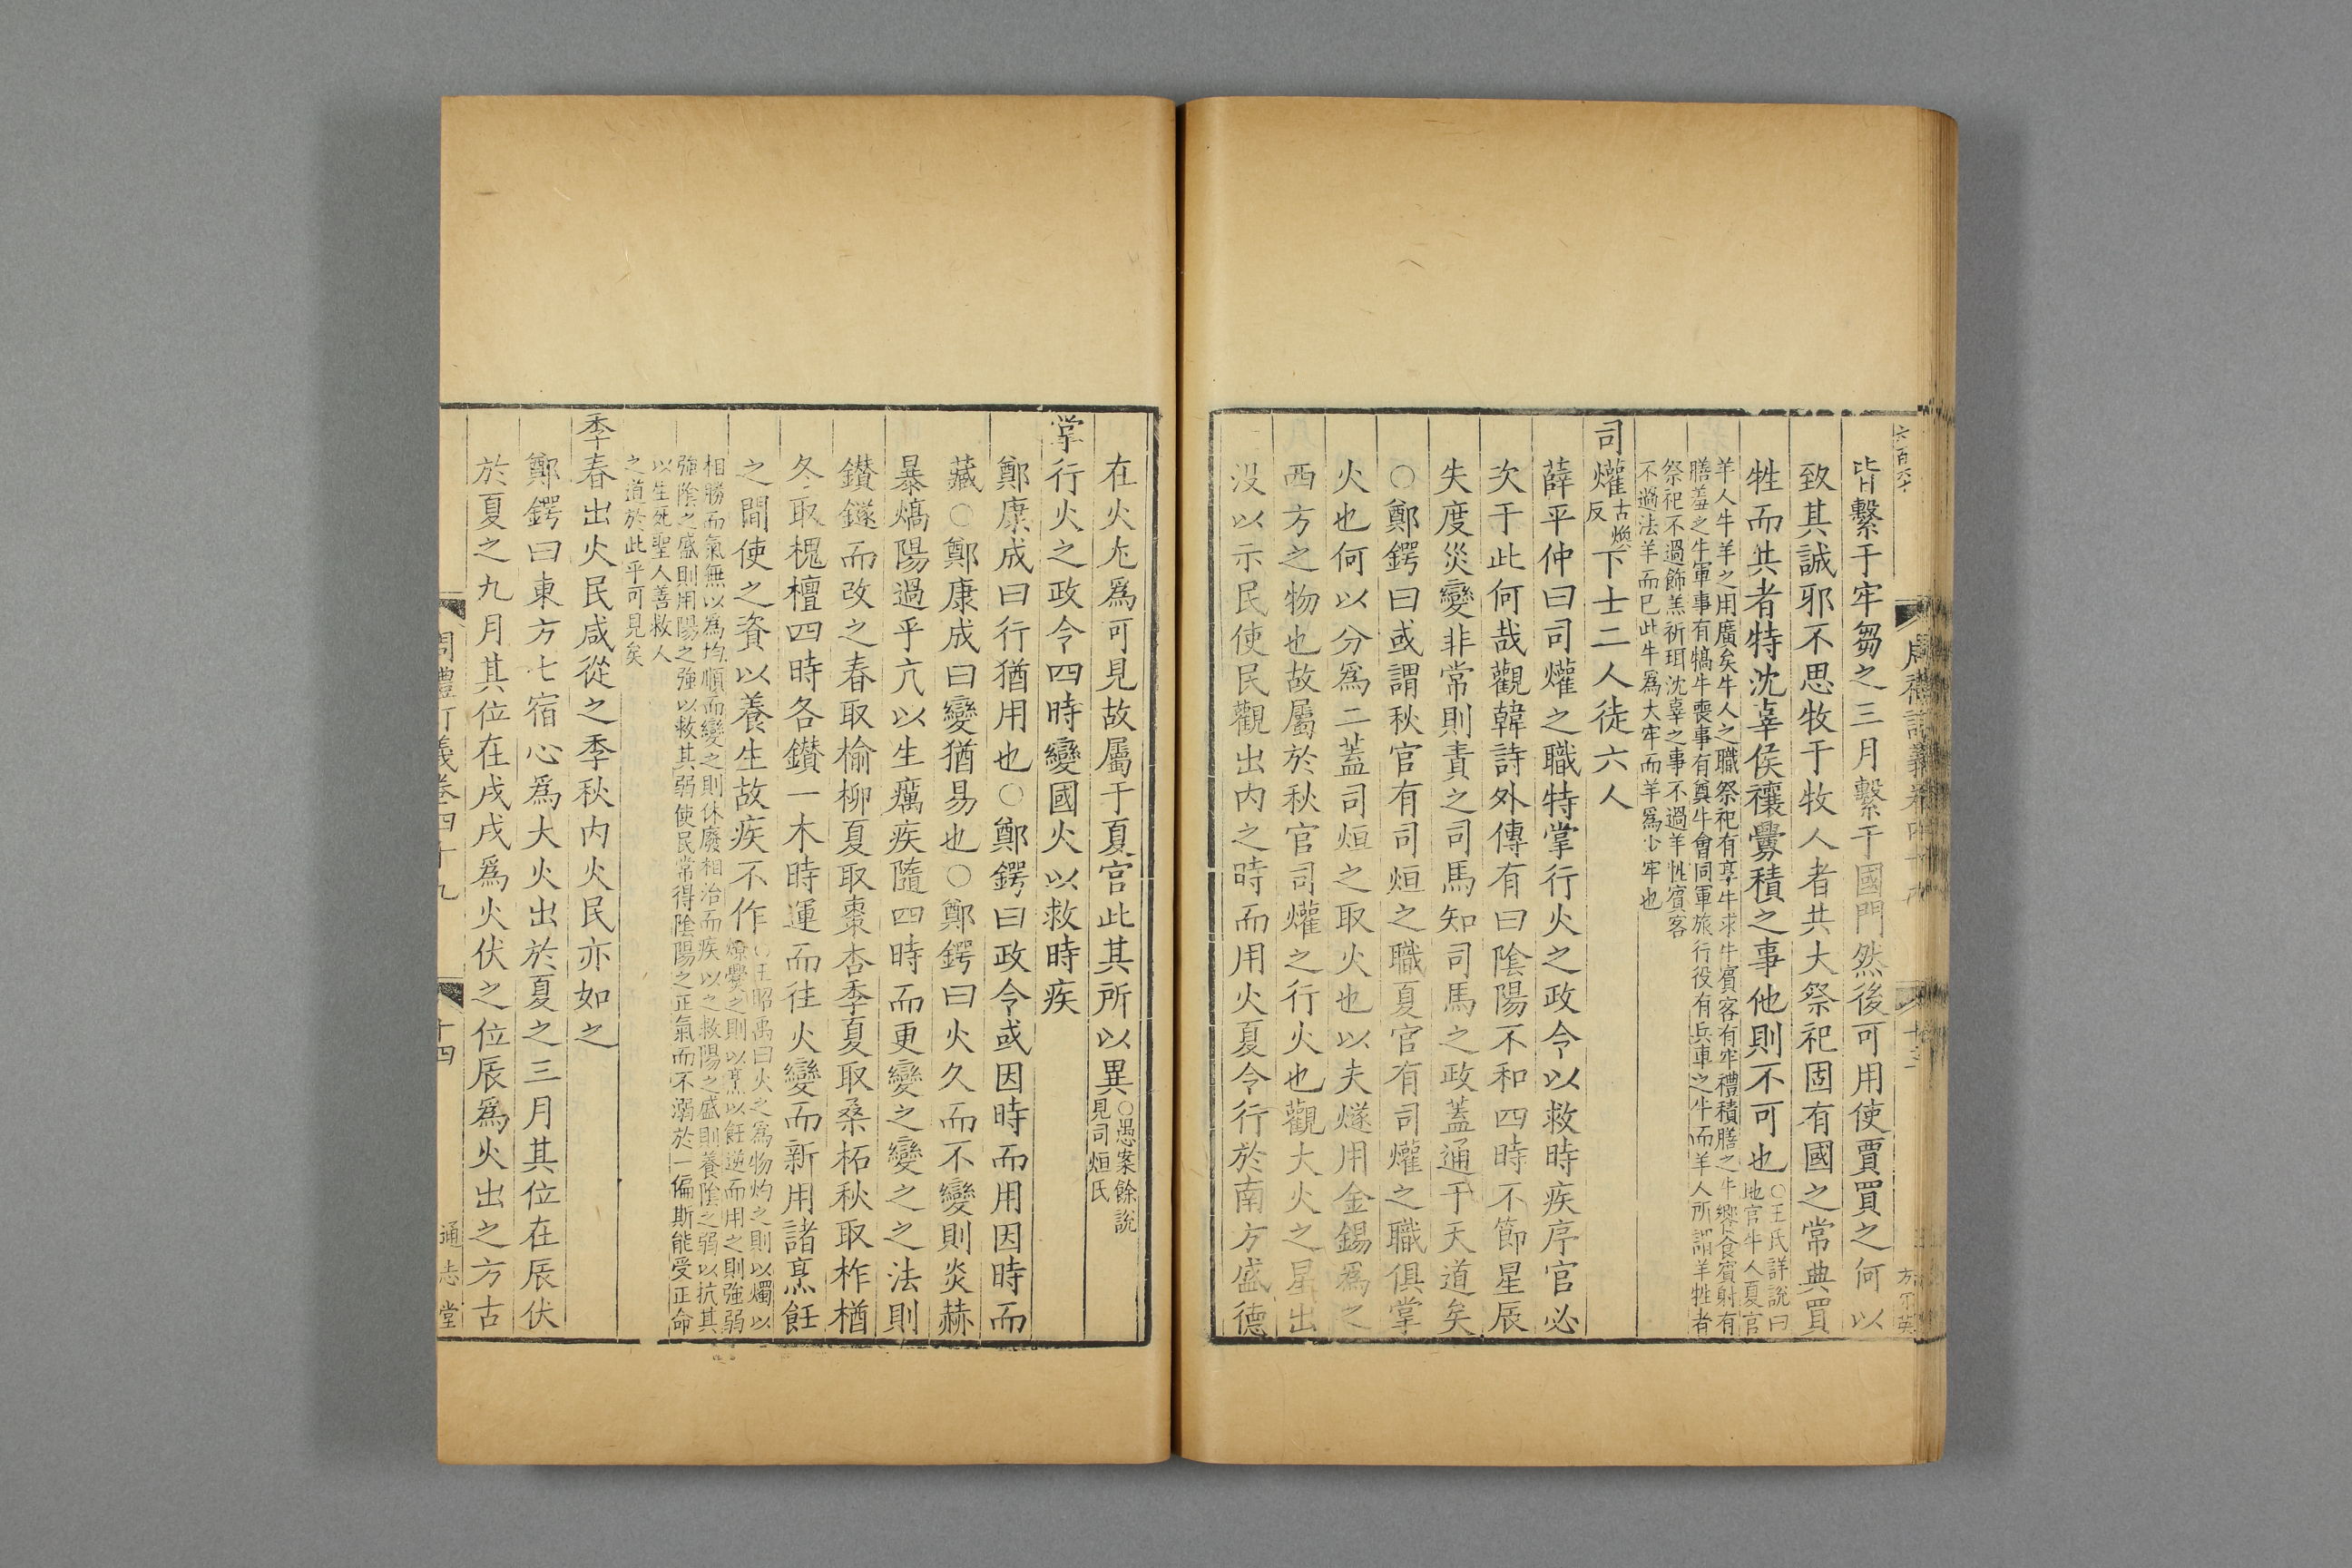 六百六十
周禮訂義卷四十九
十三
皆繫于牢芻之三月繫于國門然後可用使賈買之何以
致其誠邪不思牧于牧人者共大祭祀固有國之常典買
牲而共者特沈辜侯禳釁積之事他則不可也○王氏詳說曰
地官牛人夏官
羊人牛羊之用廣矣牛人之職祭祀有享牛求牛賓客有牢禮積膳之牛饗食賓射有
膳羞之牛軍事有犒牛喪事有奠牛會同軍旅行役有兵車之牛而羊人所謂羊牲者
祭祀不過飾羔祈珥沈辜之事不過羊牲賓客
不過法羊而已此牛爲大牢而羊爲少牢也
司爟古煥反下士二人徒六人
薛平仲曰司爟之職特掌行火之政令以救時疾序官必
次于此何哉觀韓詩外傳有曰陰陽不和四時不節星辰
失度災變非常則責之司馬知司馬之政蓋通于天道矣
○鄭鍔曰或謂秋官有司烜之職夏官有司爟之職俱掌
火也何以分爲二蓋司烜之取火也以夫燧用金錫爲之
西方之物也故屬於秋官司爟之行火也觀大火之星出
没以示民使民觀出内之時而用火夏令行於南方盛德
在火尤爲可見故屬于夏官此其所以異○愚案餘説
見司烜氏
掌行火之政令四時變國火以救時疾
鄭康成曰行猶用也○鄭鍔曰政令或因時而用因時而
藏○鄭康成曰變猶易也○鄭鍔曰火久而不變則炎赫
暴熇陽過乎亢以生癘疾隨四時而更變之變之之法則
鑚鐩而改之春取榆柳夏取棗杏季夏取桑柘秋取柞楢
冬取槐檀四時各鑚一木時運而往火變而新用諸烹飪
之間使之資以養生故疾不作○王昭禹曰火之爲物灼之則以燭以
燎爨之則以烹以飪逆而用之則強弱
相勝而氣無以爲均順而變之則休廢相治而疾以之救陽之盛則養陰之弱以抗其
強陰之盛則用陽之強以救其弱使民常得陰陽之正氣而不溺於一偏斯能受正命
以生死聖人善救人
之道於此乎可見矣
季春出火民咸從之季秋内火民亦如之
鄭鍔曰東方七宿心爲大火出於夏之三月其位在辰伏
於夏之九月其位在戌戌爲火伏之位辰爲火出之方古
周禮訂義卷四十九
十四
通志堂